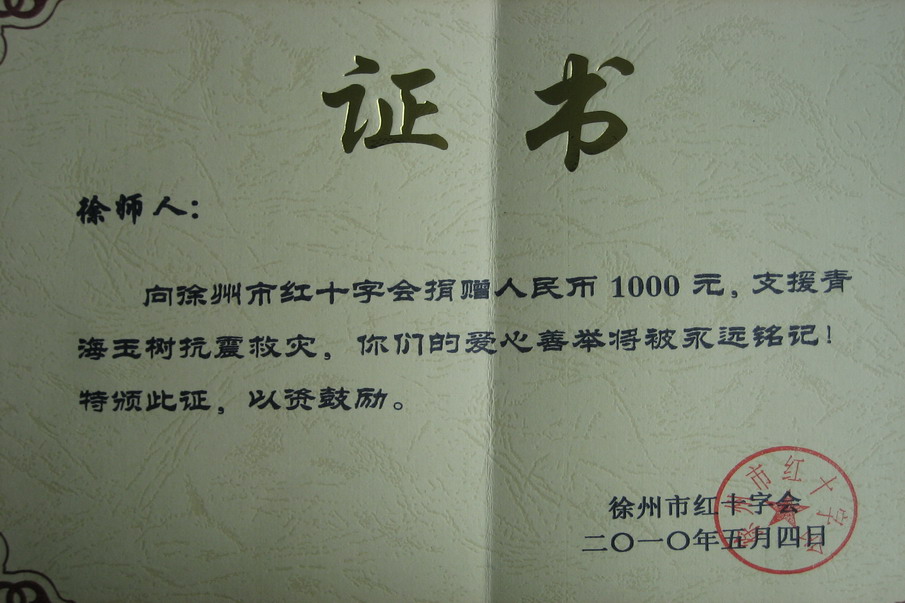 证书
徐师人：
向徐州市红十字会捐赠人民币 1000 元，支援青
海玉树抗震救灾，你们的爱心善举将被永远铭记！
特颁此证，以资鼓励。
徐州市红十字会
二〇一〇年五月四日
徐州市红十字会